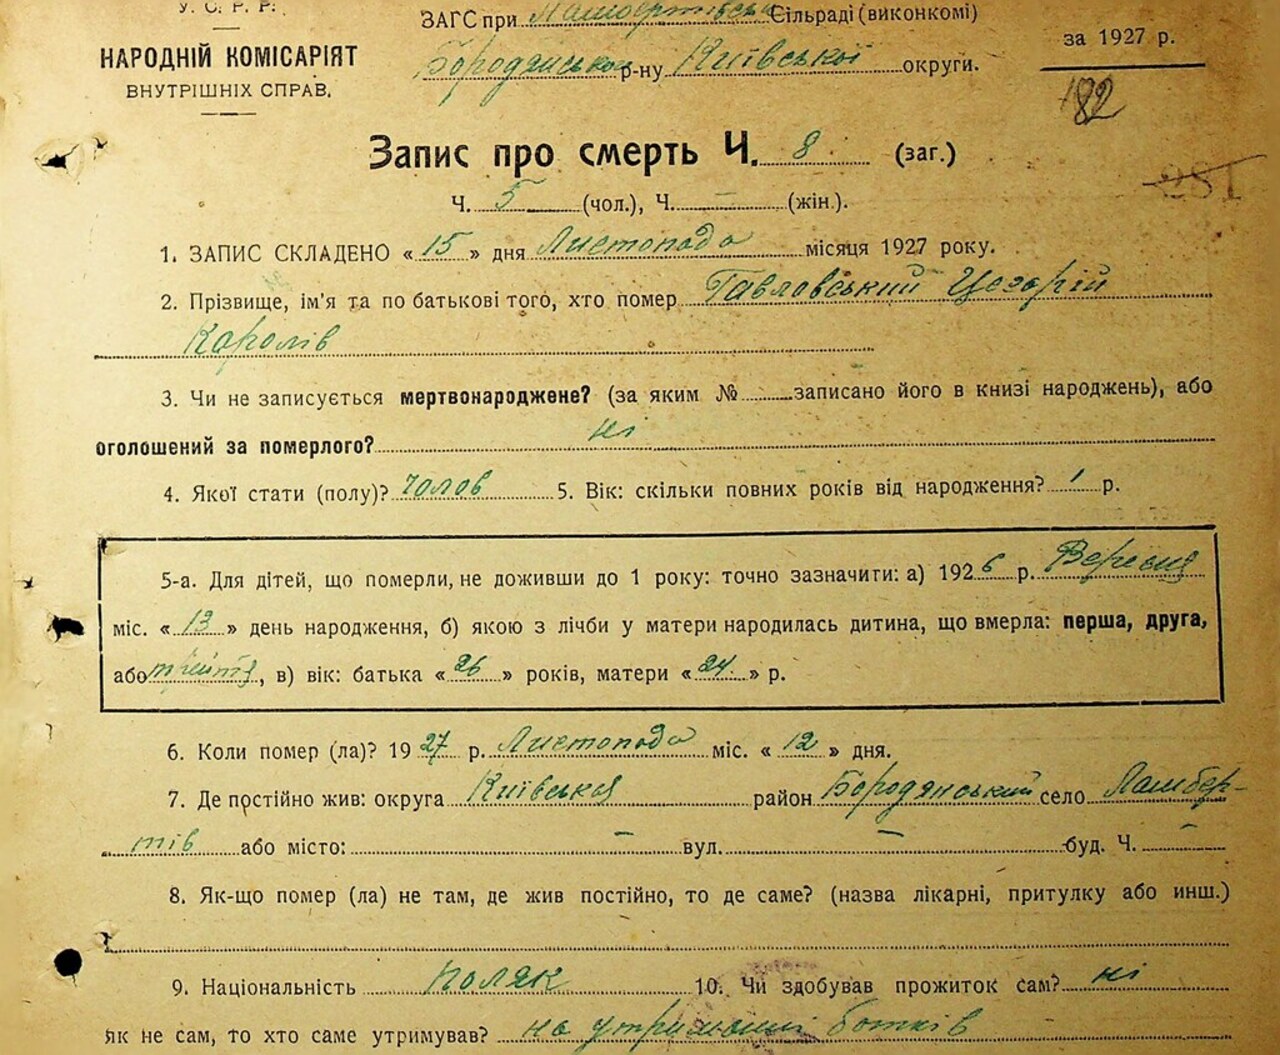 У. С. Р. Р.
НАРОДНІЙ КОМІСАРІЯТ
ВНУТРІШНІХ СПРАВ.
ЗАГС при Ламбертівськ Сільраді (виконкомі)
Бородянсько р-ну Київської округи.
за 1927 р.
182
281
Запис про смерть Ч. 8 (заг.)
Ч. 5 (чол.), Ч. — (жін.).
1. ЗАПИС СКЛАДЕНО « 15 » дня Листопада місяця 1927 року.
2. Прізвище, ім'я та по батькові того, хто помер Павловський Цезарій
Каролів
3. Чи не записується мертвонароджене? (за яким № записано його в книзі народжень), або
оголошений за померлого? ні
4. Якої стати (полу)? чолов 5. Вік: скільки повних років від народження? 1 р.
5-а. Для дітей, що померли, не доживши до 1 року: точно зазначити: а) 1926 р. Вересня
міс. « 13 » день народження, б) якою з лічби у матери народилась дитина, що вмерла: перша, друга,
або трейтя, в) вік: батька « 26 » років, матери « 24 » р.
6. Коли помер (ла)? 1927 р. Листопада міс. « 12 » дня.
7. Де постійно жив: округа Київська район Бородянський село Ламбер-
тів або місто: — вул. — буд. Ч. —
8. Як-що помер (ла) не там, де жив постійно, то де саме? (назва лікарні, притулку або инш.)
9. Національність поляк 10. Чи здобував прожиток сам? ні
Як не сам, то хто саме утримував? на утриманні батків